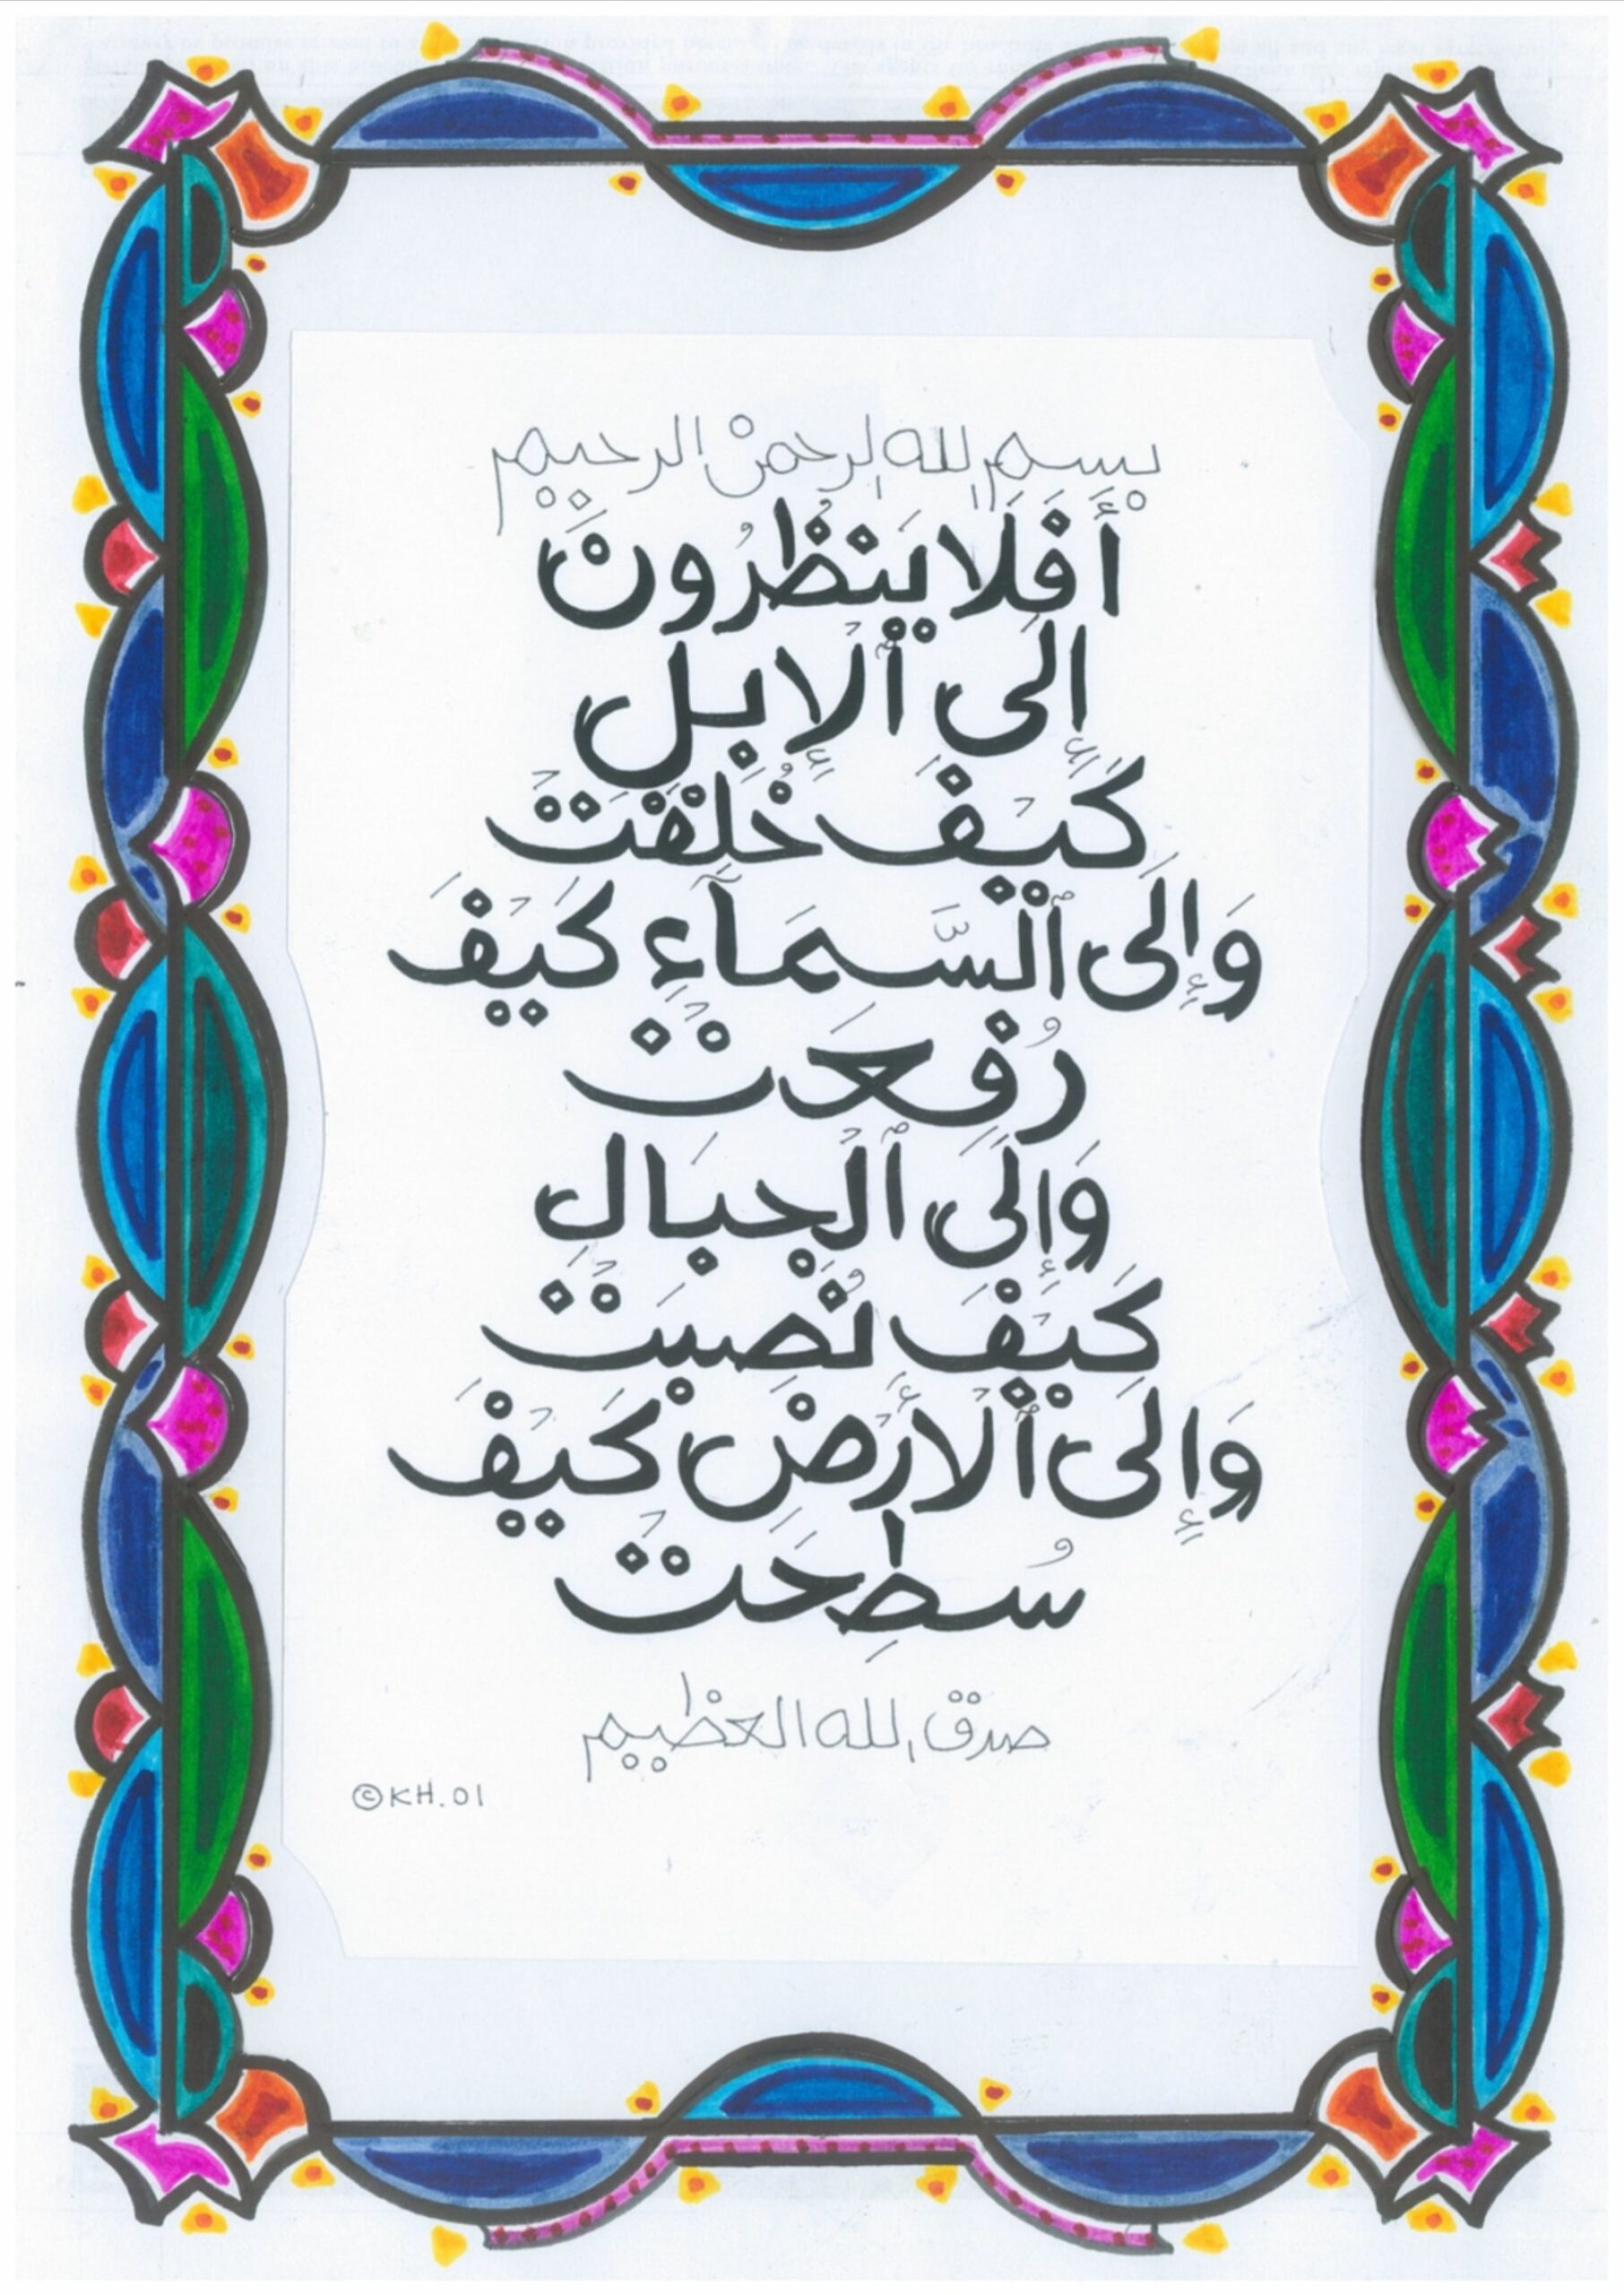 بسم الله الرحمن الرحيم
أَفَلَا يَنْظُرُونَ
إِلَى ٱلْإِبِلِ
كَيْفَ خُلِقَتْ
وَإِلَى ٱلسَّمَآءِ كَيْفَ
رُفِعَتْ
وَإِلَى ٱلْجِبَالِ
كَيْفَ نُصِبَتْ
وَإِلَى ٱلْأَرْضِ كَيْفَ
سُطِحَتْ
صدق الله العظيم
©KH.01